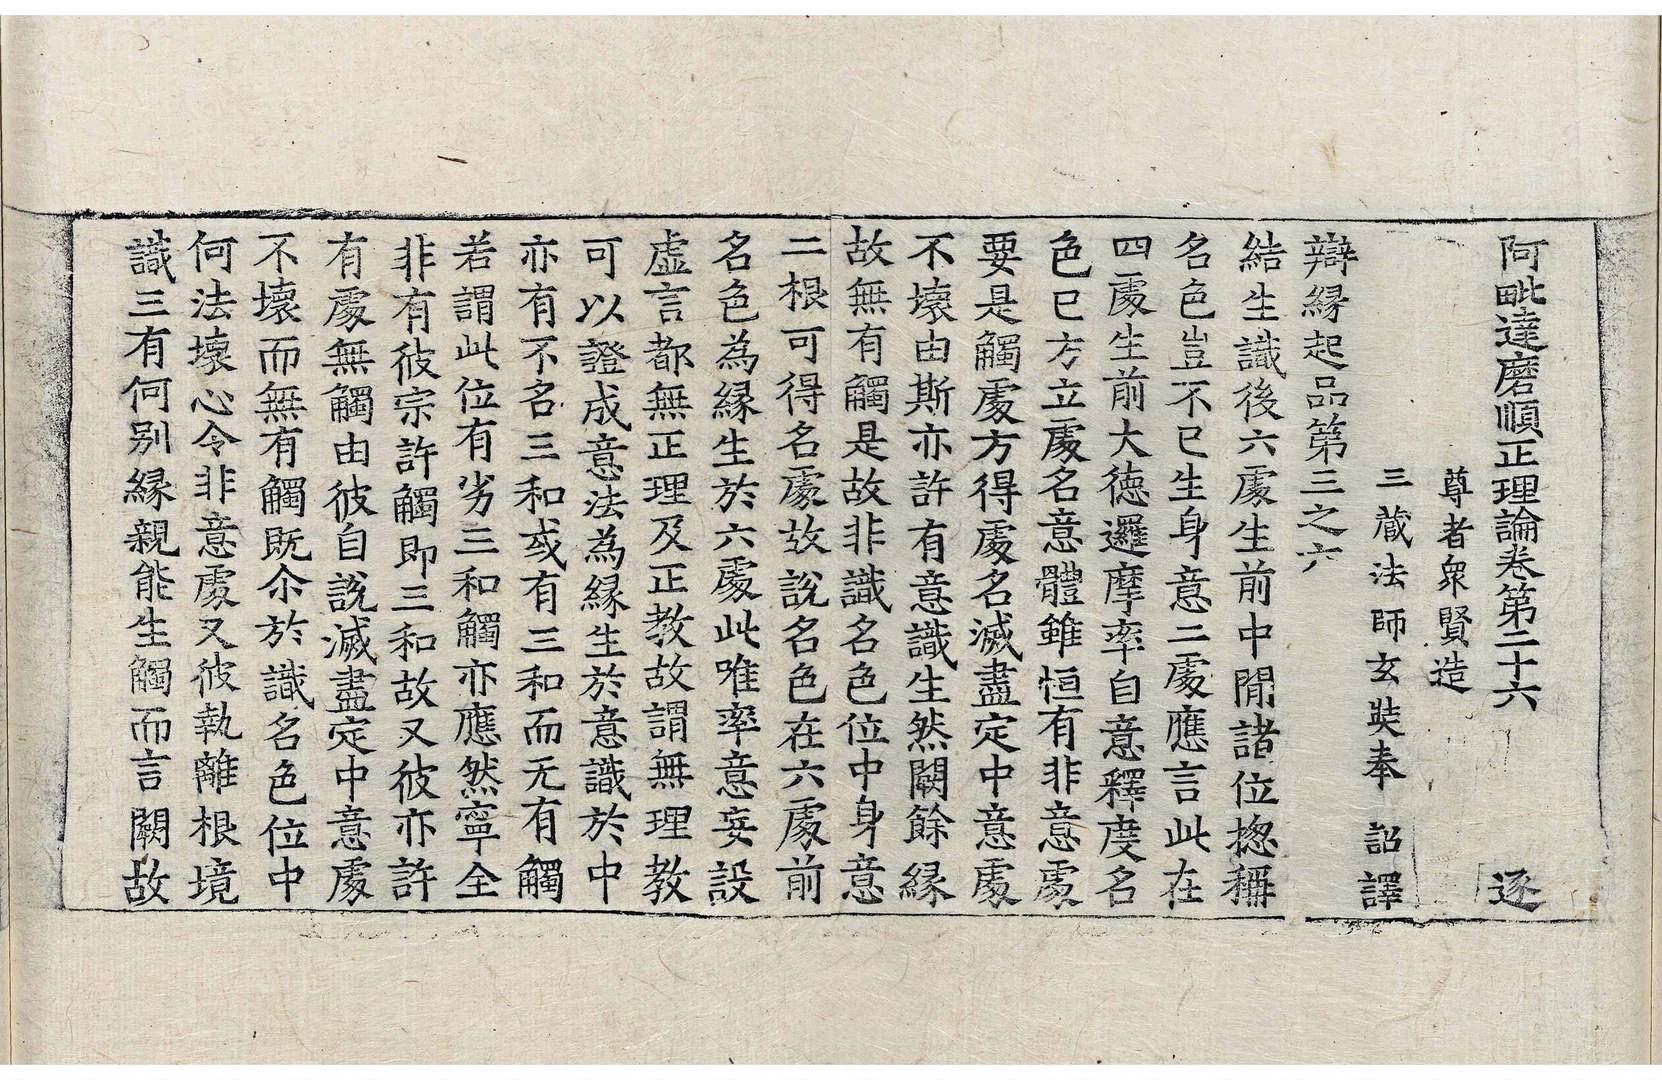 阿毗達磨順正理論卷第二十六 逐
尊者衆賢造
三藏法師玄奘奉 詔譯
辯緣起品第三之六
結生識後六處生前中閒諸位揔稱
名色豈不已生身意二處應言此在
四處生前大德邏摩率自意釋度名
色已方立處名意體雖恒有非意處
要是觸處方得處名滅盡定中意處
不壞由斯亦許有意識生然闕餘緣
故無有觸是故非識名色位中身意
二根可得名處故說名色在六處前
名色為緣生於六處此唯率意妄設
虛言都無正理及正教故謂無理教
可以證成意法為緣生於意識於中
亦有不名三和或有三和而无有觸
若謂此位有劣三和觸亦應然寧全
非有彼宗許觸即三和故又彼亦許
有處無觸由彼自說滅盡定中意處
不壞而無有觸既尒於識名色位中
何法壞心令非意處又彼執離根境
識三有何別緣親能生觸而言闕故